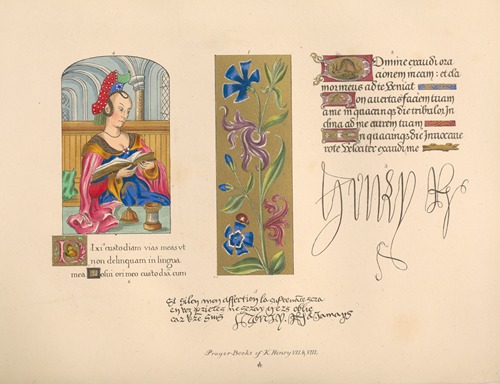 Dixi custodiam vias meas vt
non delinquam in lingua
mea Posui ori meo custodia cum
Domine exaudi ora
cionem meam : et cla
mor meus ad te Veniat
Non auertas faciem tuam
a me in quacunqȝ die tribulor In
clina ad me aurem tuam
In quacunqȝ die Inuocaue
rote Velociter exaudi me
Henry R
Si silon mon affection la sufvenance sera
en voz prieres ne seray gers oblie
car vre suis Henry R. a jamays
Prayer-Books of K. Henry VII. & VIII.